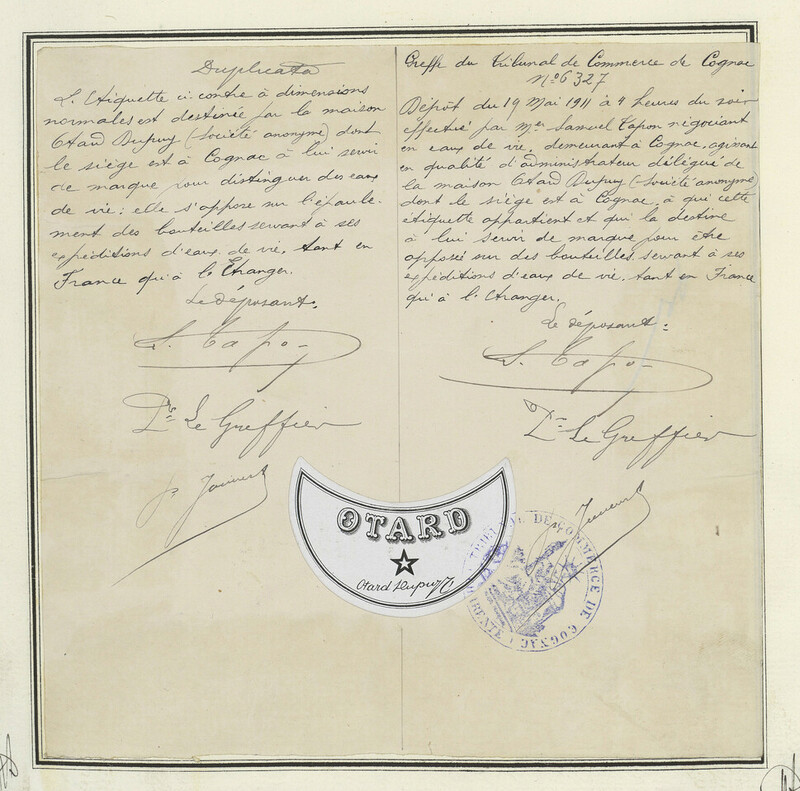 Duplicata
L'Etiquette ci-contre à dimensions
normales est destinée par la maison
Otard Dupuy (Société anonyme) dont
le siège est à Cognac à lui servir
de marque pour distinguer des eaux
de vie: elle s'appose sur l'épaule-
ment des bouteilles servant à ses
expéditions d'eaux de vie, tant en
France qu'à l'Etranger.
Le déposant.
S. Tapon
Le Greffier
Greffe du Tribunal de Commerce de Cognac
No 6327
Dépôt du 19 Mai 1911 à 4 heures du soir
effectué par Mr Samuel Tapon négociant
en eaux de vie, demeurant à Cognac, agissant
en qualité d'administrateur délégué de
la maison Otard Dupuy (Société anonyme)
dont le siège est à Cognac, à qui cette
étiquette appartient et qui la destine
à lui servir de marque pour être
apposée sur des bouteilles servant à ses
expéditions d'eaux de vie, tant en France
qu'à l'Etranger.
Le déposant:
S. Tapon
Le Greffier
OTARD
Otard Dupuy & Co
DE COMMERCE DE COGNAC